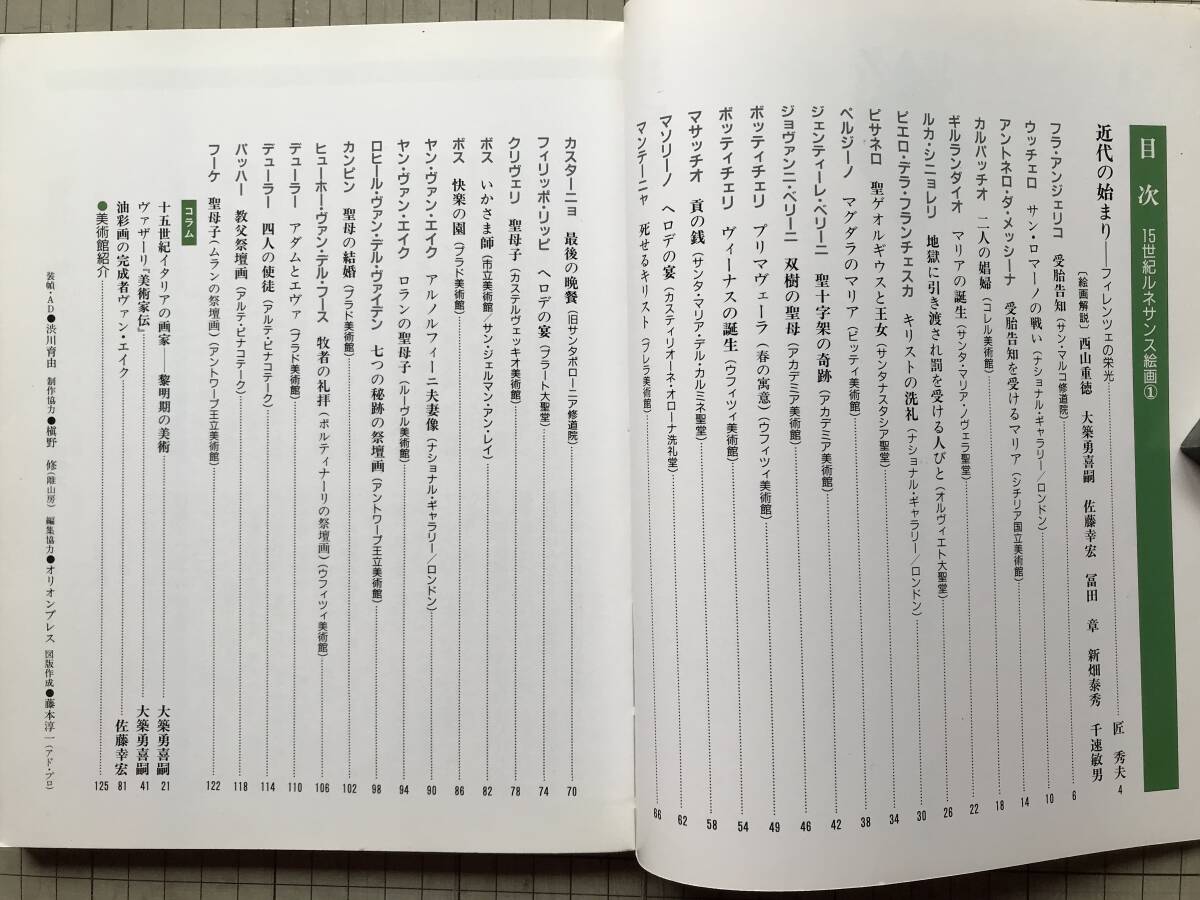 目次 15世紀ルネサンス絵画①
近代の始まり——フィレンツェの栄光 匠 秀夫 4
〔絵画解説〕西山重徳 大築勇喜嗣 佐藤幸宏 冨田 章 新畑泰秀 千速敏男
フラ・アンジェリコ 受胎告知(サン・マルコ修道院) 6
ウッチェロ サン・ロマーノの戦い(ナショナル・ギャラリー/ロンドン) 10
アントネロ・ダ・メッシーナ 受胎告知を受けるマリア(シチリア国立美術館) 14
カルパッチオ 二人の娼婦(コレル美術館) 18
ギルランダイオ マリアの誕生(サンタ・マリア・ノヴェラ聖堂) 22
ルカ・シニョレリ 地獄に引き渡され罰を受ける人びと(オルヴィエト大聖堂) 26
ピエロ・デラ・フランチェスカ キリストの洗礼(ナショナル・ギャラリー/ロンドン) 30
ピサネロ 聖ゲオルギウスと王女(サンタナスタシア聖堂) 34
ペルジーノ マグダラのマリア(ピッティ美術館) 38
ジェンティーレ・ベリーニ 聖十字架の奇跡(アカデミア美術館) 42
ジョヴァンニ・ベリーニ 双樹の聖母(アカデミア美術館) 46
ボッティチェリ プリマヴェーラ(春の寓意)(ウフィツィ美術館) 49
ボッティチェリ ヴィーナスの誕生(ウフィツィ美術館) 54
マサッチオ 貢の銭(サンタ・マリア・デル・カルミネ聖堂) 58
マソリーノ ヘロデの宴(カスティリオーネ・オローナ洗礼堂) 62
マンテーニャ 死せるキリスト(ブレラ美術館) 66
カスターニョ 最後の晩餐(旧サンタポローニア修道院) 70
フィリッポ・リッピ ヘロデの宴(プラート大聖堂) 74
クリヴェリ 聖母子(カステルヴェッキオ美術館) 78
ボス いかさま師(市立美術館/サン・ジェルマン・アン・レイ) 82
ボス 快楽の園(プラド美術館) 86
ヤン・ヴァン・エイク アルノルフィーニ夫妻像(ナショナル・ギャラリー/ロンドン) 90
ヤン・ヴァン・エイク ロランの聖母子(ルーヴル美術館) 94
ロヒール・ヴァン・デル・ヴァイデン 七つの秘跡の祭壇画(アントワープ王立美術館) 98
カンピン 聖母の結婚(プラド美術館) 102
ヒューホー・ヴァン・デル・フース 牧者の礼拝(ポルティナーリの祭壇画)(ウフィツィ美術館) 106
デューラー アダムとエヴァ(プラド美術館) 110
デューラー 四人の使徒(アルテ・ピナコテーク) 114
パッハー 教父祭壇画(アルテ・ピナコテーク) 118
フーケ 聖母子(ムランの祭壇画)(アントワープ王立美術館) 122
コラム
十五世紀イタリアの画家——黎明期の美術 大築勇喜嗣 21
ヴァザーリ『美術家伝』 大築勇喜嗣 41
油彩画の完成者ヴァン・エイク 佐藤幸宏 81
●美術館紹介 125
装幀・AD●渋川育由 制作協力●槇野 修(離山房) 編集協力●オリオンプレス 図版作成●藤本淳一(アド・プロ)